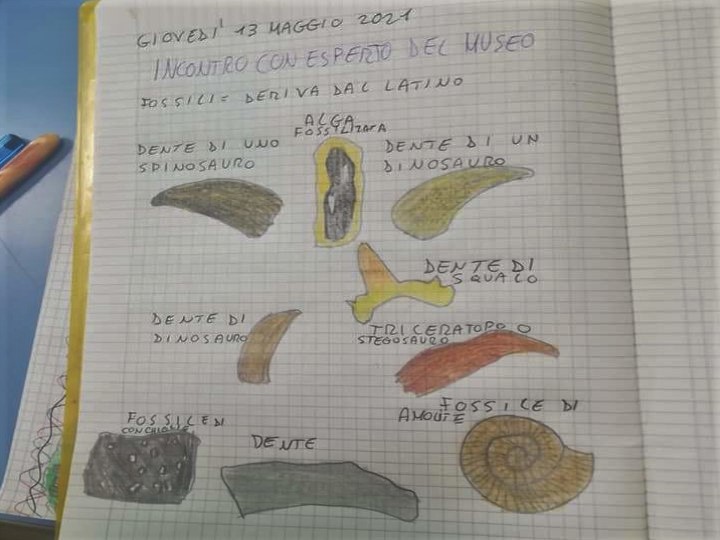 GIOVEDI' 13 MAGGIO 2021
INCONTRO CON ESPERTO DEL MUSEO
FOSSILI = DERIVA DAL LATINO
ALGA
FOSSILIZZATA
DENTE DI UNO
SPINOSAURO
DENTE DI UN
DINOSAURO
DENTE DI
SQUALO
DENTE DI
DINOSAURO
TRICERATOPO O
STEGOSAURO
FOSSILE DI
DENTE
FOSSILE DI